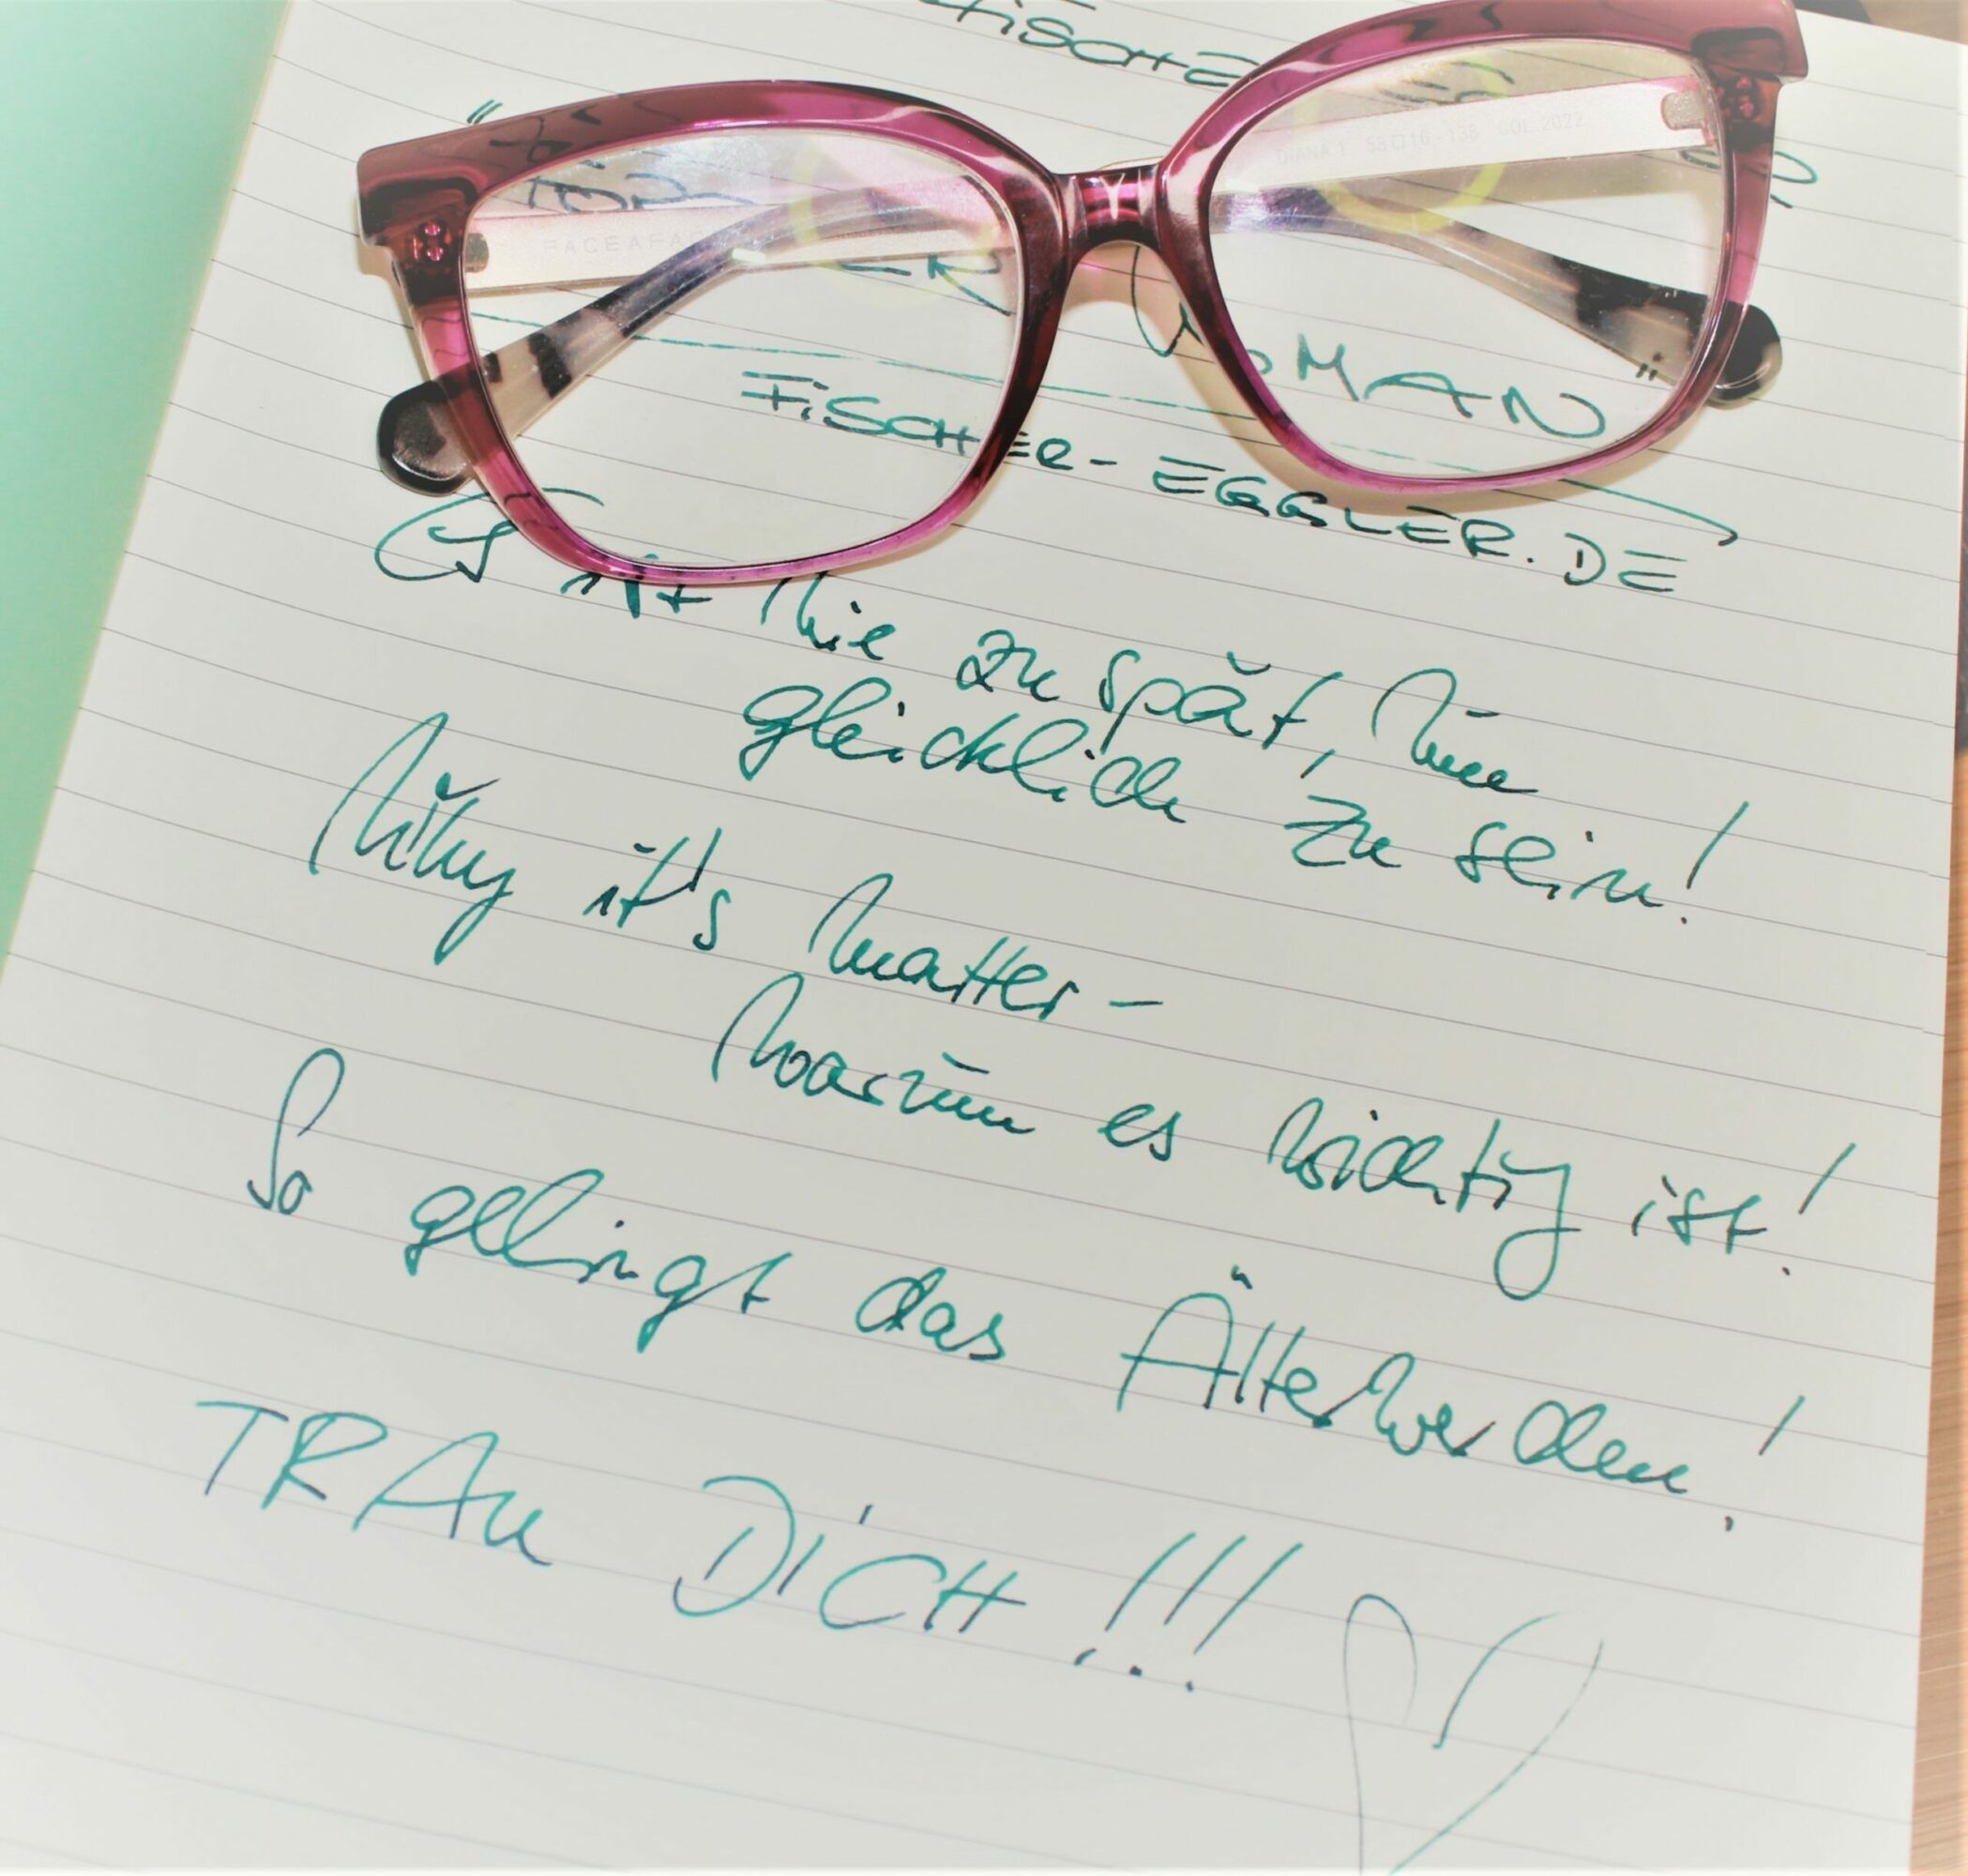 FISCHE
FACEAFAC
DIANA 1 53□16-138 COL.2022
WOMAN"
FISCHER-EGGLER.DE
Es ist nie zu spät, um
glücklich zu sein!
Why it's matter -
Warum es wichtig ist!
So gelingt das Älterwerden!
TRAU DICH!!!